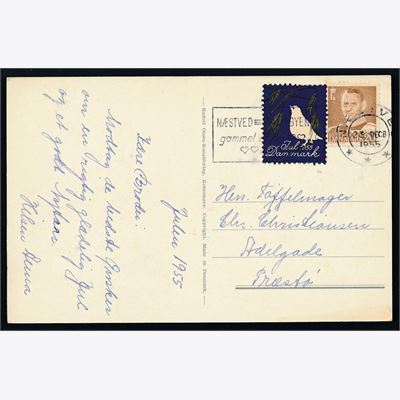 Julen 1955
Kære Broder!
Modtag de bedste Ønsker
om en rigtig glædelig Jul
og et godt Nytaar.
Hilsen Anna
Rudolf Olsens Kunstforlag, København. Copyright. Made in Denmark.
NÆSTVED
gammel
Jul 1955
Danmark
DECB
1955
Hrr. Tøffelmager
Chr. Christiansen
Adelgade
Præstø